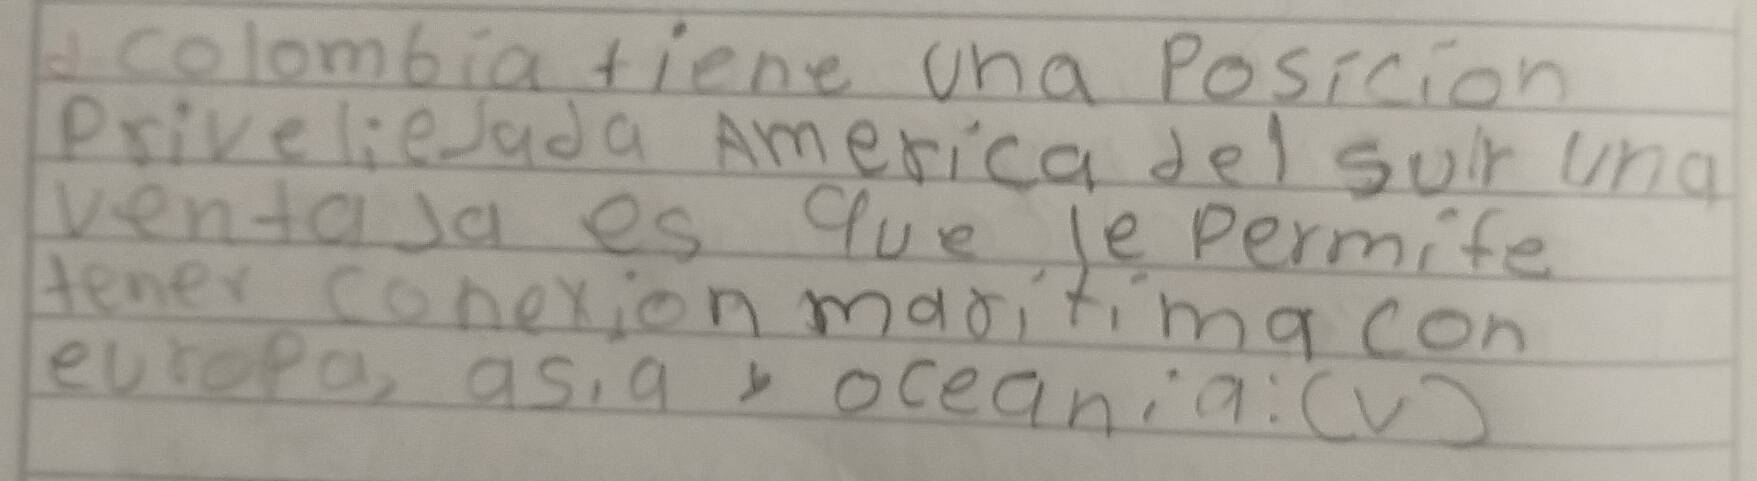 d colombia tiene una Posicion
Priveliejada America del sur una
ventaja es que le permite
tener conexion maritima con
europa, asia y oceania: (v)